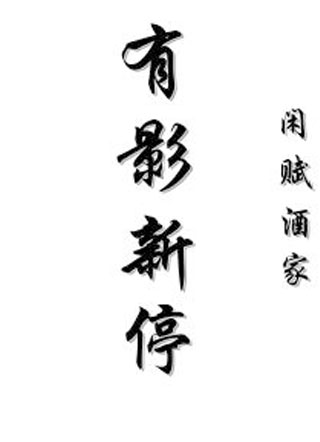 有影新停
闲赋酒家